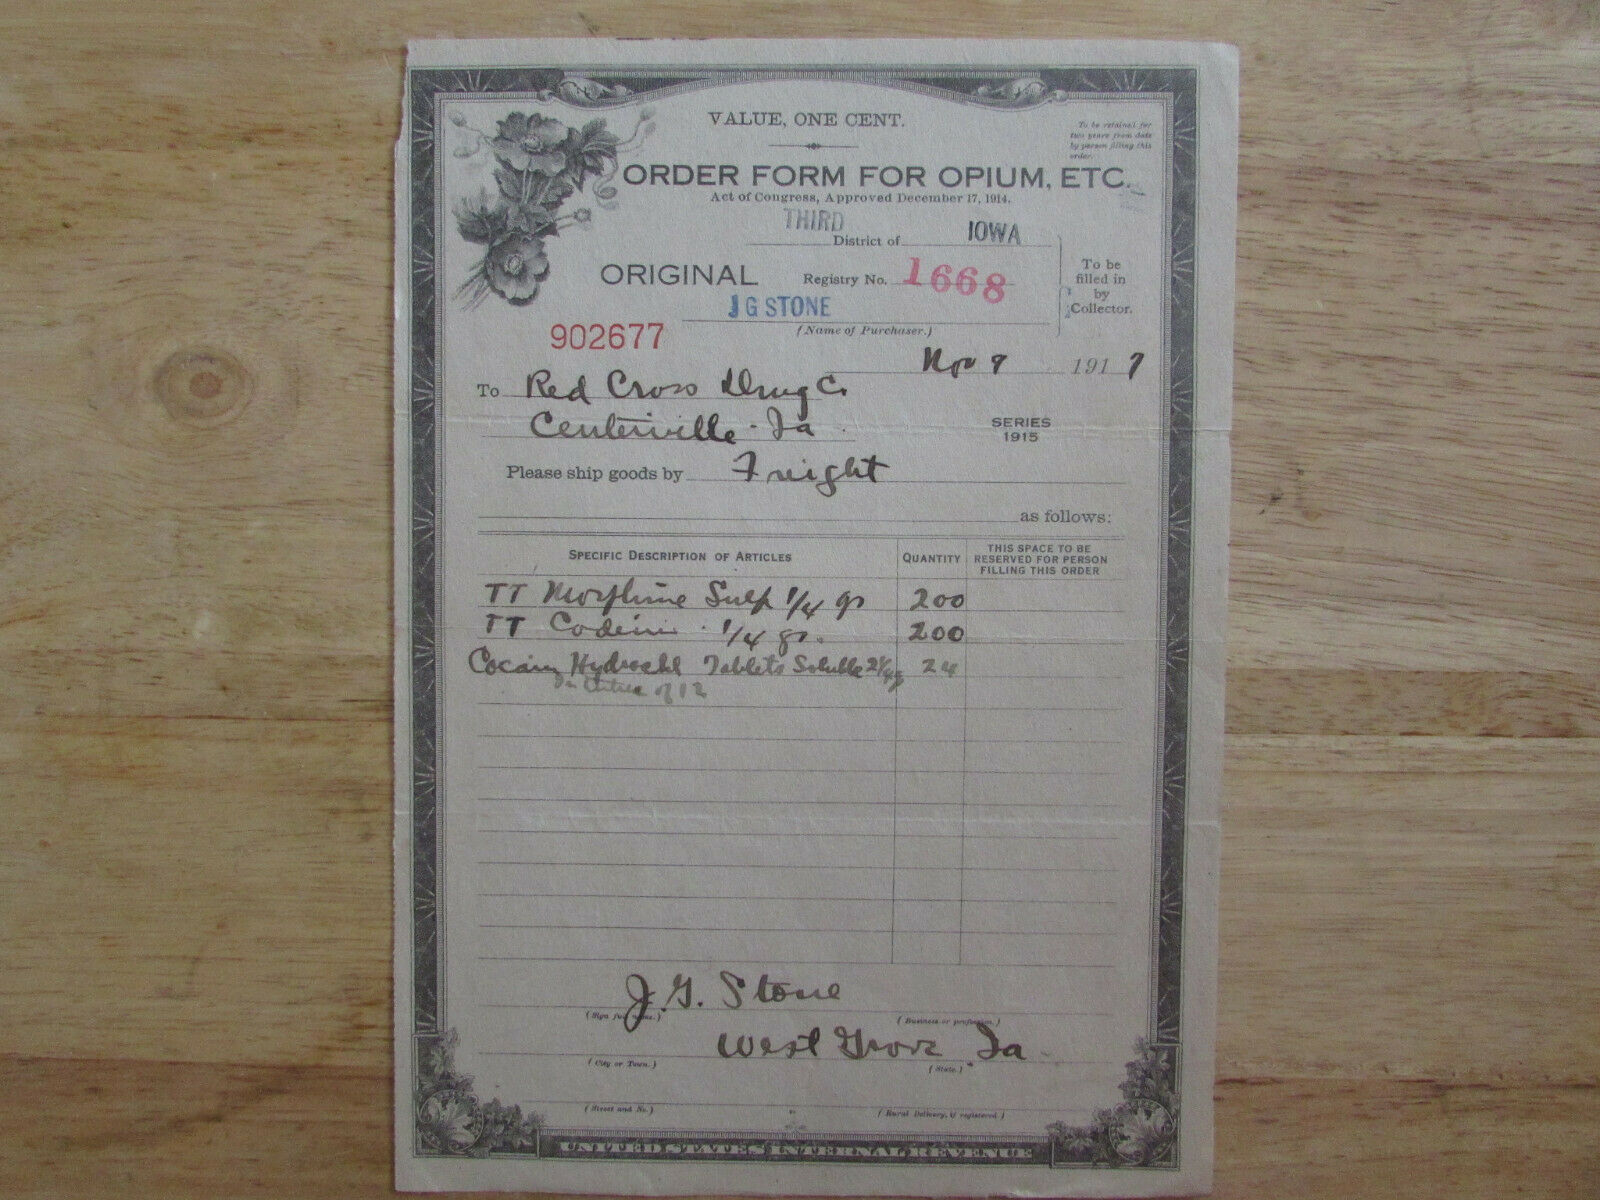 VALUE, ONE CENT.
To be retained for
two years from date
by person filling this
order.
ORDER FORM FOR OPIUM, ETC.
Act of Congress, Approved December 17, 1914.
THIRD District of IOWA
ORIGINAL Registry No. 1668
To be
filled in
by
Collector.
J G STONE
(Name of Purchaser.)
902677
Nov 9 1917
To Red Cross Drug Co
Centerville Ia
SERIES
1915
Please ship goods by Freight
as follows:
SPECIFIC DESCRIPTION OF ARTICLES QUANTITY THIS SPACE TO BE RESERVED FOR PERSON FILLING THIS ORDER
TT Morphine Sulp 1/4 gr 200
TT Codein 1/4 gr. 200
Cocain Hydrochl Tablets Soluble 2 1/4 g 24
In of 12
J. G. Stone
(Sign full name.) (Business or profession.)
West Grove Ia
(City or Town.) (State.)
(Street and No.) (Rural Delivery, if registered.)
UNITED STATES INTERNAL REVENUE